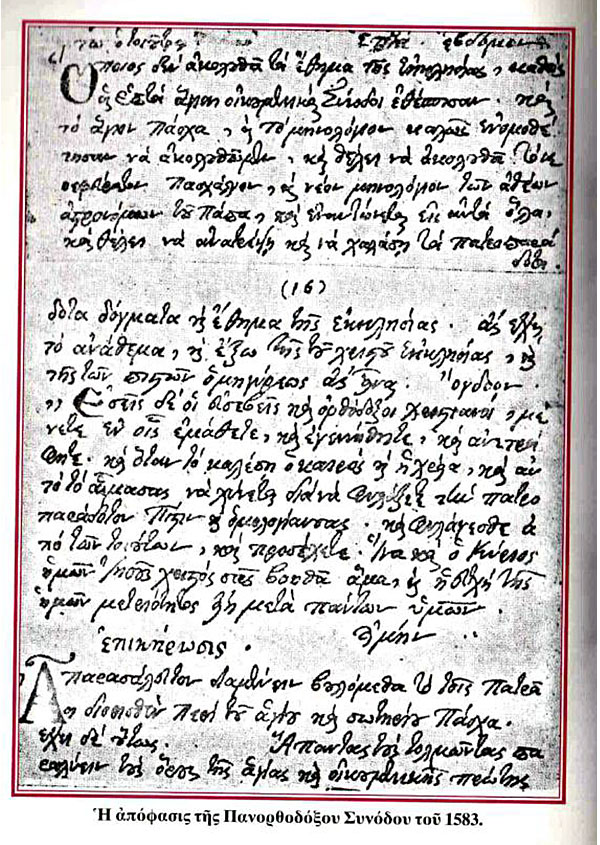 Ὅποιος δὲν ἀκολουθᾶ τὰ ἔθημα τῆς ἐκκλησίας, καθὼς
ᾑ Ἑπτὰ ἅγιαι οἰκουμενικαὶ Σύνοδοι ἐθέσπισαν. καὶ
τὸ ἅγιον πάσχα, καὶ τὸ μηνολόγιον καλῶς ἐνομοθέ
τησαν νὰ ἀκολουθῶμεν, καὶ θέλει νὰ ἀκολουθᾶ τὸ νε
οεφεύρετον πασχάλιον, καὶ νέον μηνολόγιον τῶν ἀθέων
ἀστρονόμων τοῦ πάπα, καὶ ἐναντιώνεται εἰς αὐτὰ ὅλα,
καὶ θέλει νὰ ἀνατρέψῃ καὶ νὰ χαλάσῃ τὰ πατροπαρά
δοτα.
(16)
δοτα δόγματα καὶ ἔθημα τῆς ἐκκλησίας. ἂς ἔχῃ
τὸ ἀνάθεμα, καὶ ἔξω τῆς τοῦ χριστοῦ ἐκκλησίας, καὶ
τῆς τῶν πιστῶν ὁμηγύρεως ἂς ἦναι. ὄγδοον.
Ἐσεῖς δὲ οἱ εὐσεβεῖς καὶ ὀρθόδοξοι χριστιανοί, μέ
νετε ἐν οἷς ἐμάθετε, καὶ ἐγεννήθητε, καὶ ἀνετρά
φητε. καὶ ὅταν τὸ καλέσῃ ὁ καιρὸς καὶ ἡ χρεία, καὶ αὐ
τὸ τὸ αἷμασας νὰ χύνεται διὰ νὰ φυλάξετε τὴν πατρο
παράδοτον πίστιν καὶ ὁμολογίαν σας. καὶ φυλάγεσθε ἀ
πὸ τῶν τοιούτων, καὶ προσέχετε. ἵνα καὶ ὁ Κύριος
ἡμῶν Ἰησοῦς χριστὸς σᾶς βοηθᾶ ἅμα, καὶ ἡ εὐχὴ τῆς
ἡμῶν μετριότητος εἴη μετὰ πάντων ὑμῶν.
Ἀμήν
ἐπικήρωσις.
Ἀπαρασάλευτον διαμένειν βουλόμεθα τὸ τοῖς πατρᾶ
σι διορισθὲν περὶ τοῦ ἁγίου καὶ σωτηρίου Πάσχα.
ἔχει δὲ οὕτως. Ἅπαντας τοὺς τολμῶντας πα
ραλύειν τοὺς ὅρους τῆς ἁγίας καὶ οἰκουμενικῆς πρώτης
Ἡ ἀπόφασις τῆς Πανορθοδόξου Συνόδου τοῦ 1583.